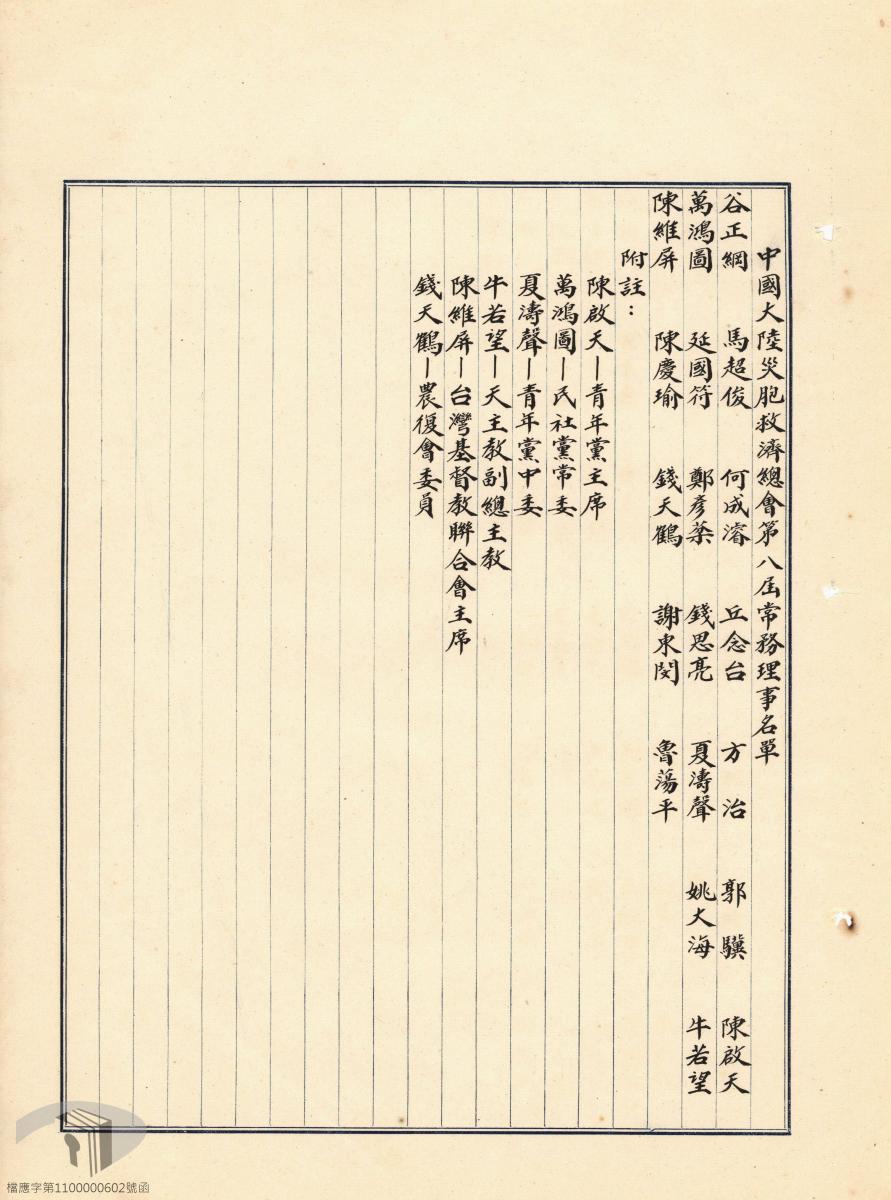 中國大陸災胞救濟總會第八屆常務理事名單
谷正綱 馬超俊 何成濬 丘念台 方治 郭驥 陳啟天
萬鴻圖 延國符 鄭彥棻 錢思亮 夏濤聲 姚大海 牛若望
陳維屏 陳慶瑜 錢天鶴 謝東閔 魯蕩平
附註：
陳啟天—青年黨主席
萬鴻圖—民社黨常委
夏濤聲—青年黨中委
牛若望—天主教副總主教
陳維屏—台灣基督教聯合會主席
錢天鶴—農復會委員
檔應字第1100000602號函